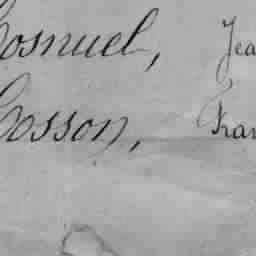 Cosnuel, Jea
Cosson, Fran